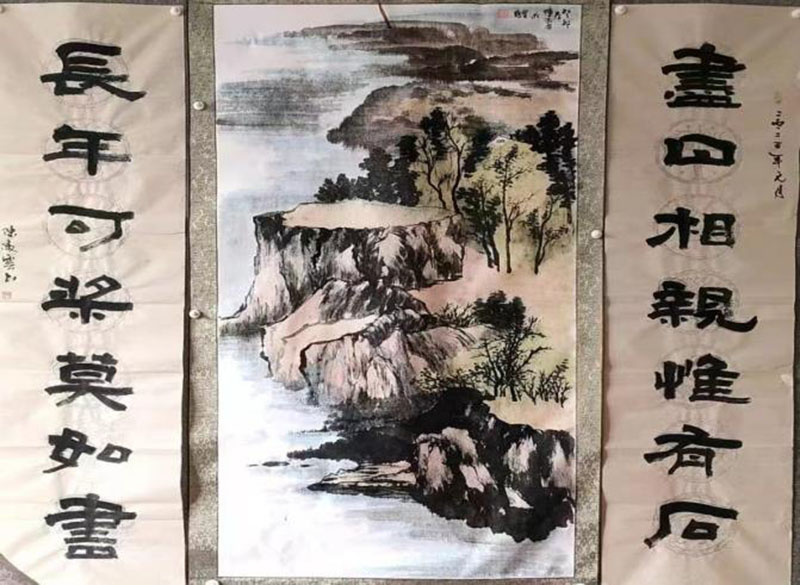 盡日相親惟有石
年元月
長年可樂莫如書